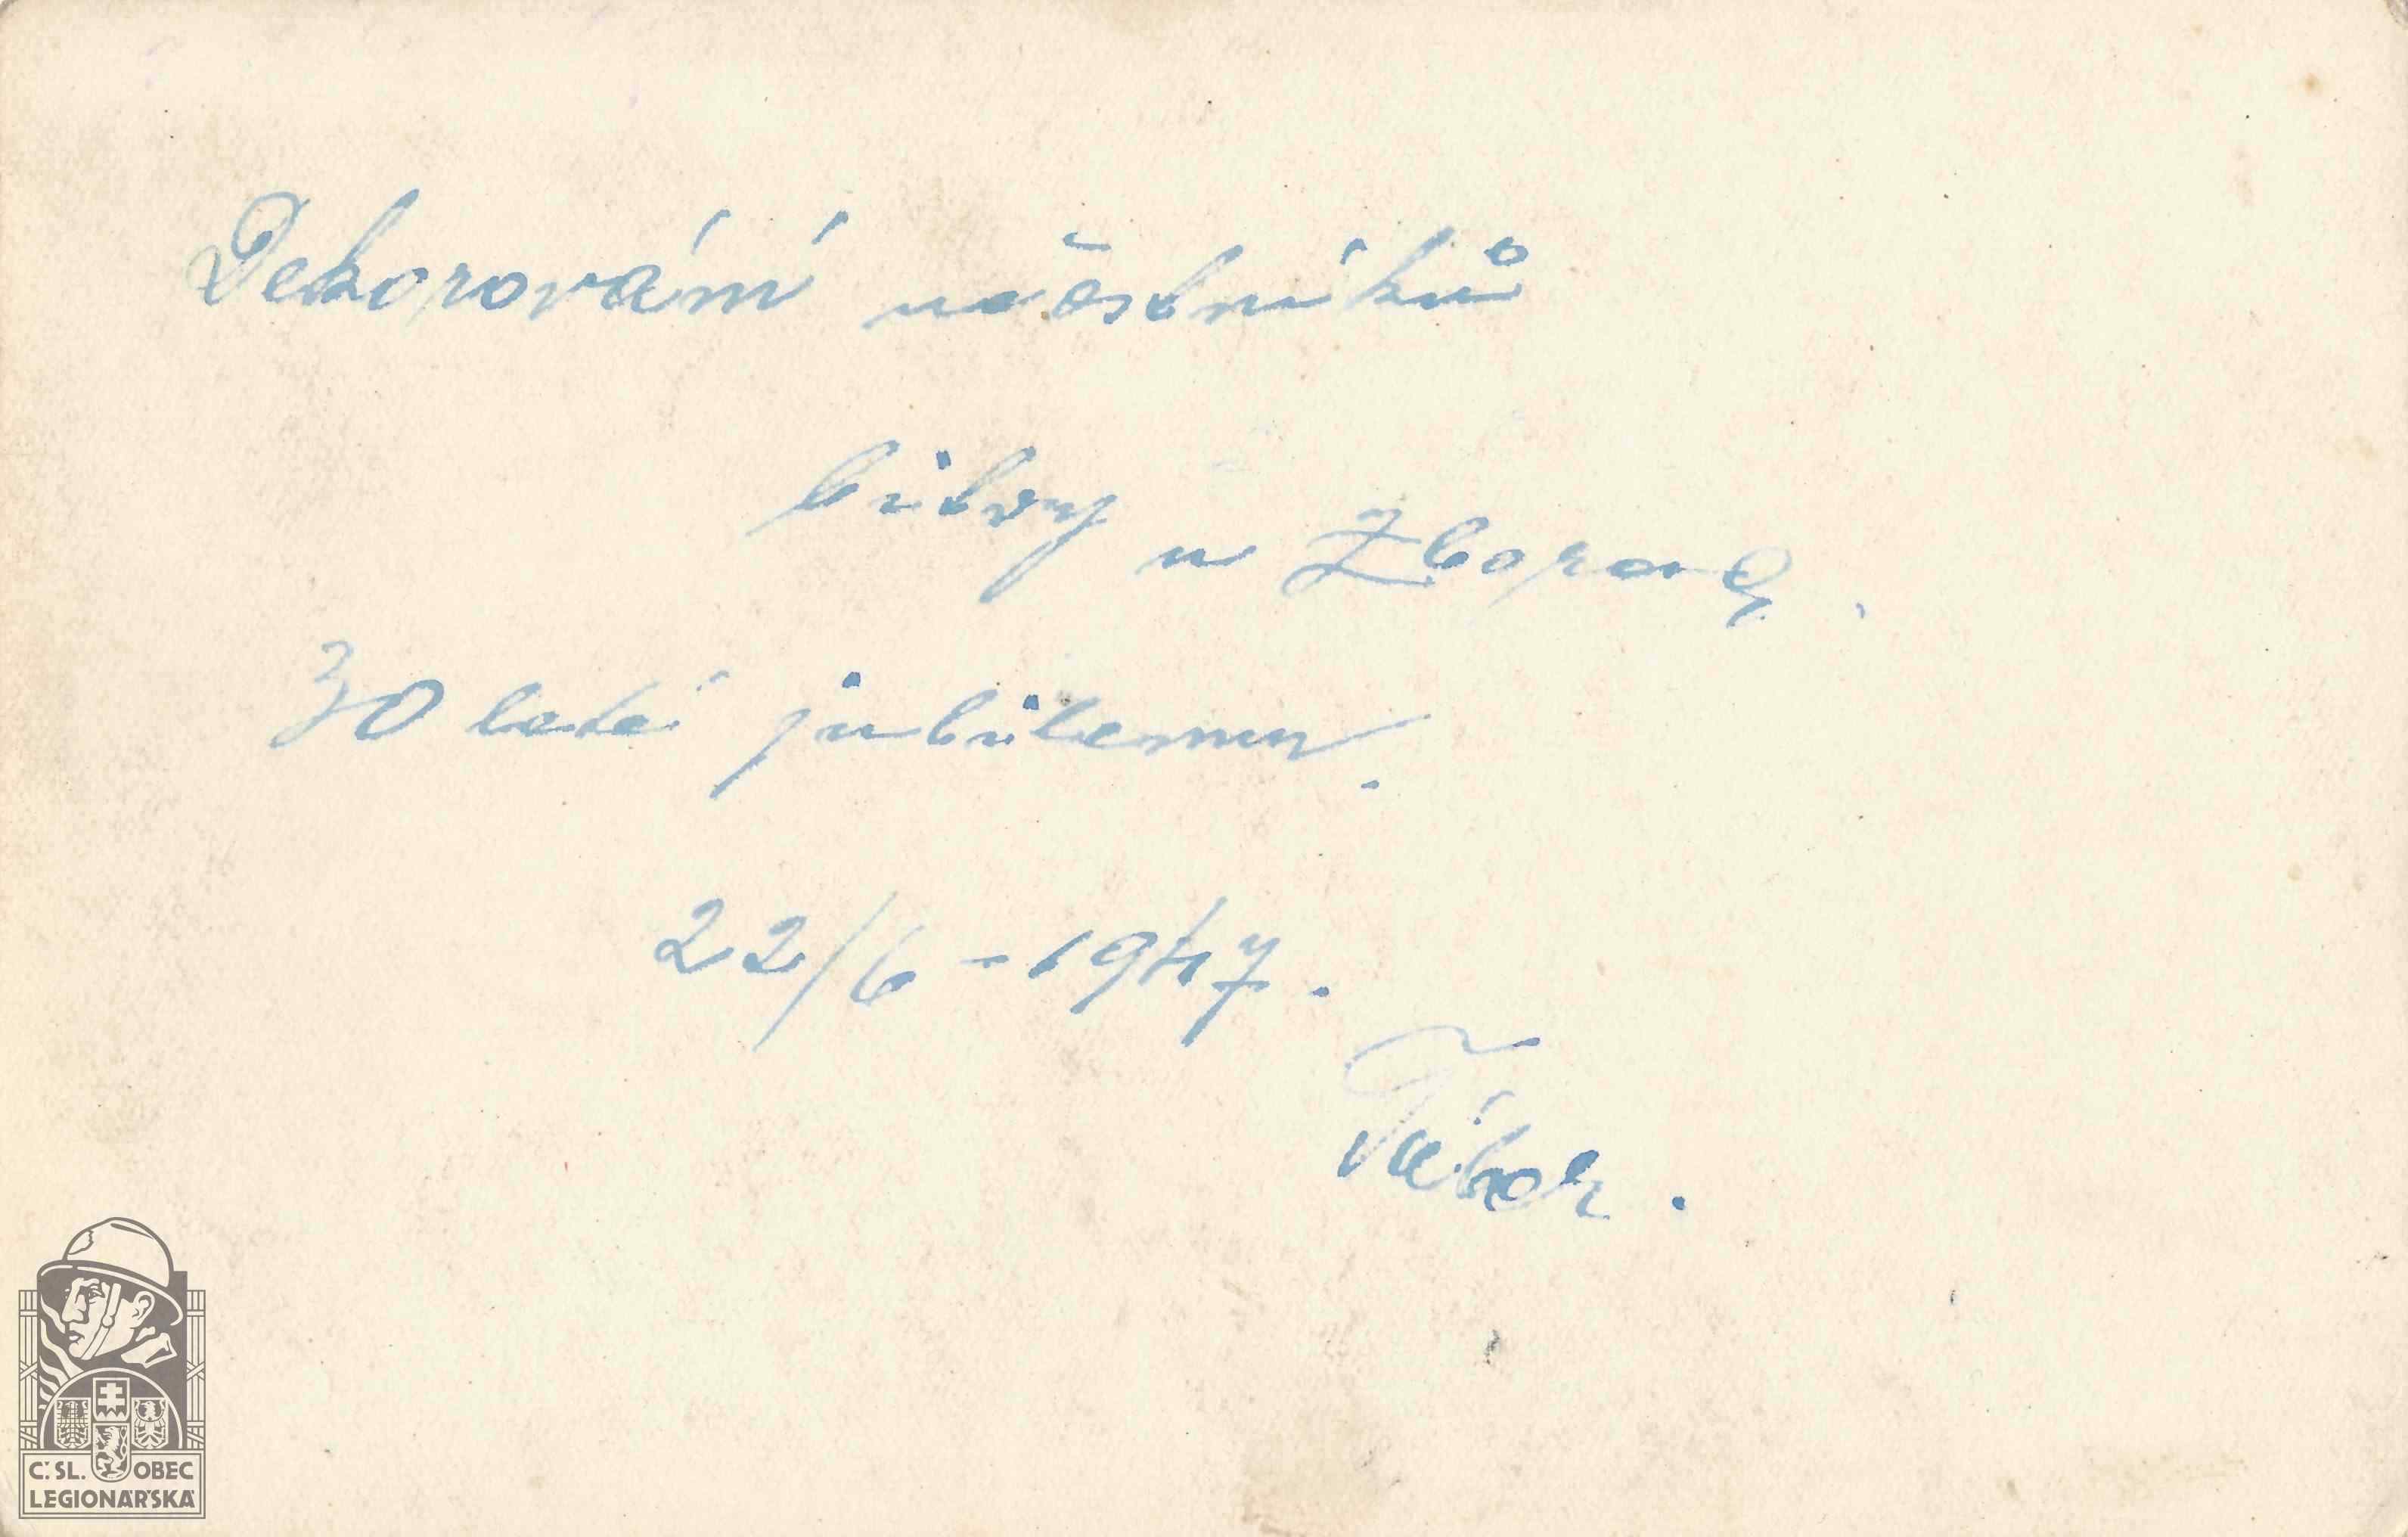 Dekorování učastníků
bitvy u Zborova.
30 leté jubileum.
22/6 - 1947.
Tábor.
Č. SL. OBEC
LEGIONÁŘSKÁ